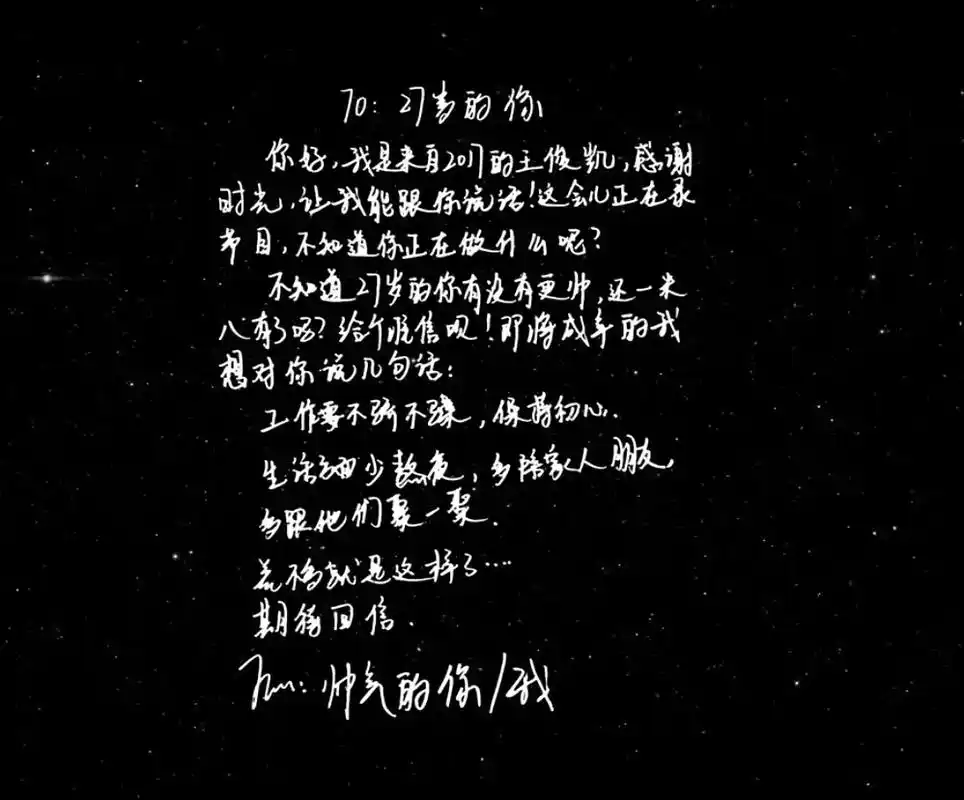 To: 27岁的你
你好,我是来自2017的王俊凯,感谢
时光,让我能跟你说话!这会儿正在录
节目,不知道你正在做什么呢?
不知道27岁的你有没有更帅,还一米
八有了吗?给个准信呗!即将成年的我
想对你说几句话:
工作要不骄不躁,保持初心.
生活上面少熬夜,多陪家人朋友,
多跟他们聚一聚.
差不多就是这样了....
期待回信.
From: 帅气的你/我